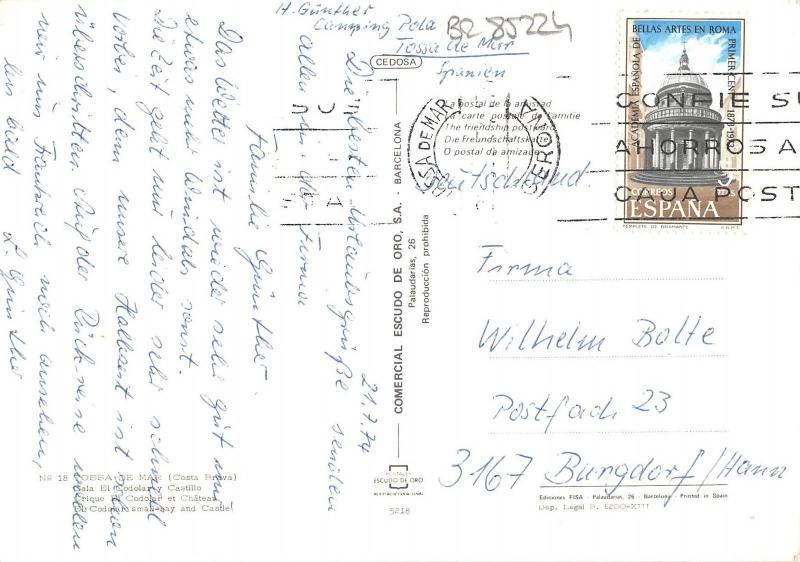 H. Günther
Camping Pola
Tossa de Mar
Spanien
BR 85224
CEDOSA
La postal de la amistad
La carte postale de l'amitie
The friendship postcard
Die Freundschaftskarte
O postal da amizade
TOSSA DE MAR
GERONA
CONFIE SU
AHORROS A
CAJA POST
ACADEMIA ESPAÑOLA DE BELLAS ARTES EN ROMA
PRIMER CENT. 1873-19
CORREOS
ESPAÑA
TEMPLETE DE BRAMANTE
F.N.M.T.
Deutschland.
Firma
Wilhelm Bolte
Postfach 23
3167 Burgdorf/Hann
21.7.74
Die besten Urlaubsgrüße senden
allen in der Firma
Familie Günther.
Das Wetter ist wieder sehr gut nur
etwas mehr Wind als sonst.
Die Zeit geht nur leider sehr schnell
vorbei, denn unsere Halbzeit ist schon
überschritten. Auf der Rückreise wollen
wir uns Frankreich noch ansehen,
bis bald H. Günther
COMERCIAL ESCUDO DE ORO, S.A. - BARCELONA
Palaudarias, 26
Reproducción prohibida
POSTALES
ESCUDO DE ORO
5218
Nº 18 TOSSA DE MAR (Costa Brava)
Cala El Codolar y Castillo
Crique El Codolar et Château
El Codolar: small-bay and Castle
Ediciones FISA - Palaudarias, 26 - Barcelona - Printed in Spain
Dep. Legal B. 6200-XIII